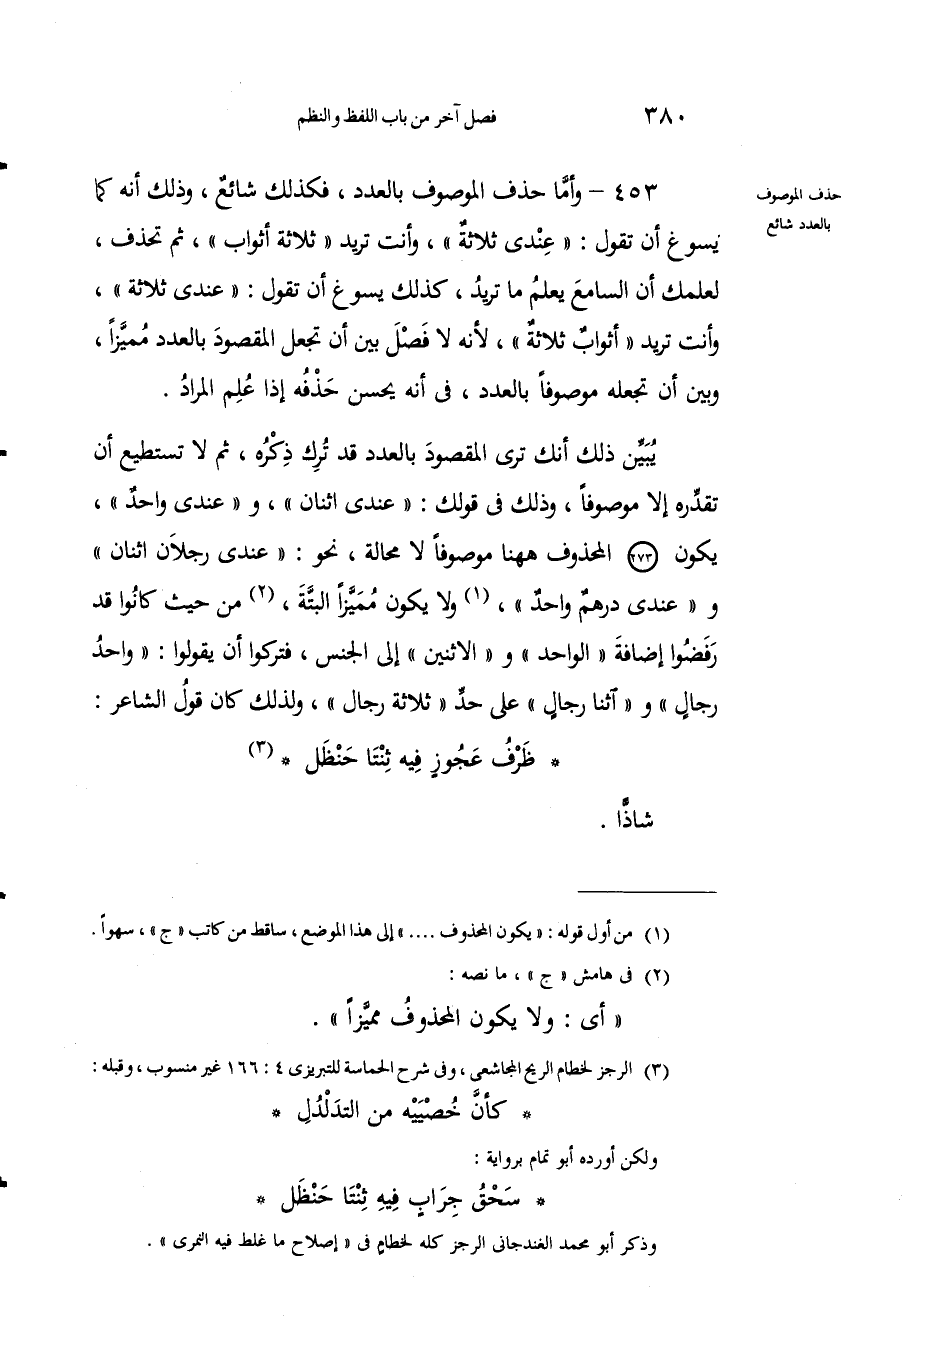 ٣٨٠ فصل آخر من باب اللفظ والنظم
حذف الموصوف
بالعدد شائع
٤٥٣ – وأمَّا حذف الموصوف بالعدد ، فكذلك شائعٌ ، وذلك أنه كما
يسوغ أن تقول : « عِنْدى ثلاثةٌ » ، وأنت تريد « ثلاثة أثواب » ، ثم تحذف ،
لعلمك أن السامعَ يعلمُ ما تريدُ ، كذلك يسوغ أن تقول : « عندى ثلاثة » ،
وأنت تريد « أثوابٌ ثلاثةٌ » ، لأنه لا فَصْلَ بين أن تجعل المقصودَ بالعدد مُميَّزاً ،
وبين أن تجعله موصوفاً بالعدد ، فى أنه يحسن حَذْفُه إذا عُلِم المرادُ .
يُبَيِّن ذلك أنك ترى المقصودَ بالعدد قد تُرِك ذِكْرُه ، ثم لا تستطيع أن
تقدِّره إلا موصوفاً ، وذلك فى قولك : « عندى اثنان » ، و « عندى واحدٌ » ،
يكون (٢٧٣) المحذوف ههنا موصوفاً لا محالة ، نحو : « عندى رجلاَن اثنان »
و « عندى درهمٌ واحدٌ » ، (١) ولا يكون مُمَيَّزاً البتَّةَ ، (٢) من حيث كانُوا قد
رَفَضُوا إضافةَ « الواحد » و « الاثنين » إلى الجنس ، فتركوا أن يقولوا : « واحدُ
رجالٍ » و « آثنا رجالٍ » على حدِّ « ثلاثة رجال » ، ولذلك كان قولُ الشاعر :
* ظَرْفُ عَجُوزٍ فِيه ثِنْتَا حَنْظَل * (٣)
شاذًّا .
(١) من أول قوله : « يكون المحذوف .... » إلى هذا الموضع ، ساقط من كاتب « ج » ، سهواً .
(٢) فى هامش « ج » ، ما نصه :
« أى : ولا يكون المحذوفُ مميَّزاً » .
(٣) الرجز لخطام الريح المجاشعى ، وفى شرح الحماسة للتبريزى ٤ : ١٦٦ غير منسوب ، وقبله :
* كأنَّ خُصْيَيْه من التدَلْدُلِ *
ولكن أورده أبو تمام برواية :
* سَحْقُ جِرَابٍ فِيهِ ثِنْتَا حَنْظَل *
وذكر أبو محمد الغندجانى الرجز كله لخطامٍ فى « إصلاح ما غلط فيه النمرى » .